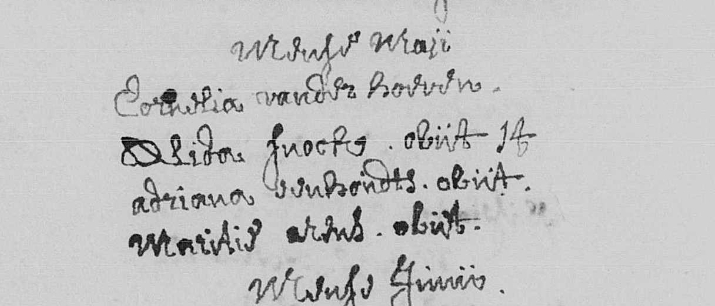 Mense Maji
Cornelia vander hoeven.
Alida obiit 14
adriana obiit.
Maritie arens. obiit.
Mense Junii.